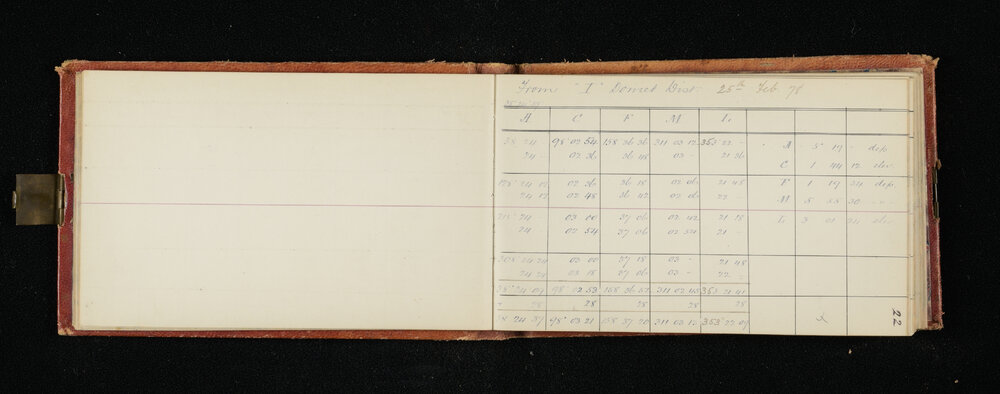 From "I" Domet Dist. 25th Feb 78
A C F M L
38 24 - 98 02 54 158 36 36 311 03 12 353 22 - A - 5 19 - dep
24 - 02 36 36 48 03 - 21 36 C 1 44 12 elev.
128 24 12 02 36 36 18 02 06 21 48 F 1 19 34 dep.
24 12 02 48 36 42 02 06 22 - M 5 55 30
24 - 03 00 37 06 02 42 21 18 L 3 01 24
24 - 02 54 37 06 02 54 21 -
308 24 24 03 00 37 18 03 - 21 48
24 24 03 18 37 06 03 - 22 -
38 24 09 98 02 53 158 36 52 311 02 45 353 21 41
28 28 28 28 28
24 37 98 03 21 158 37 20 311 03 13 353 22 09
22